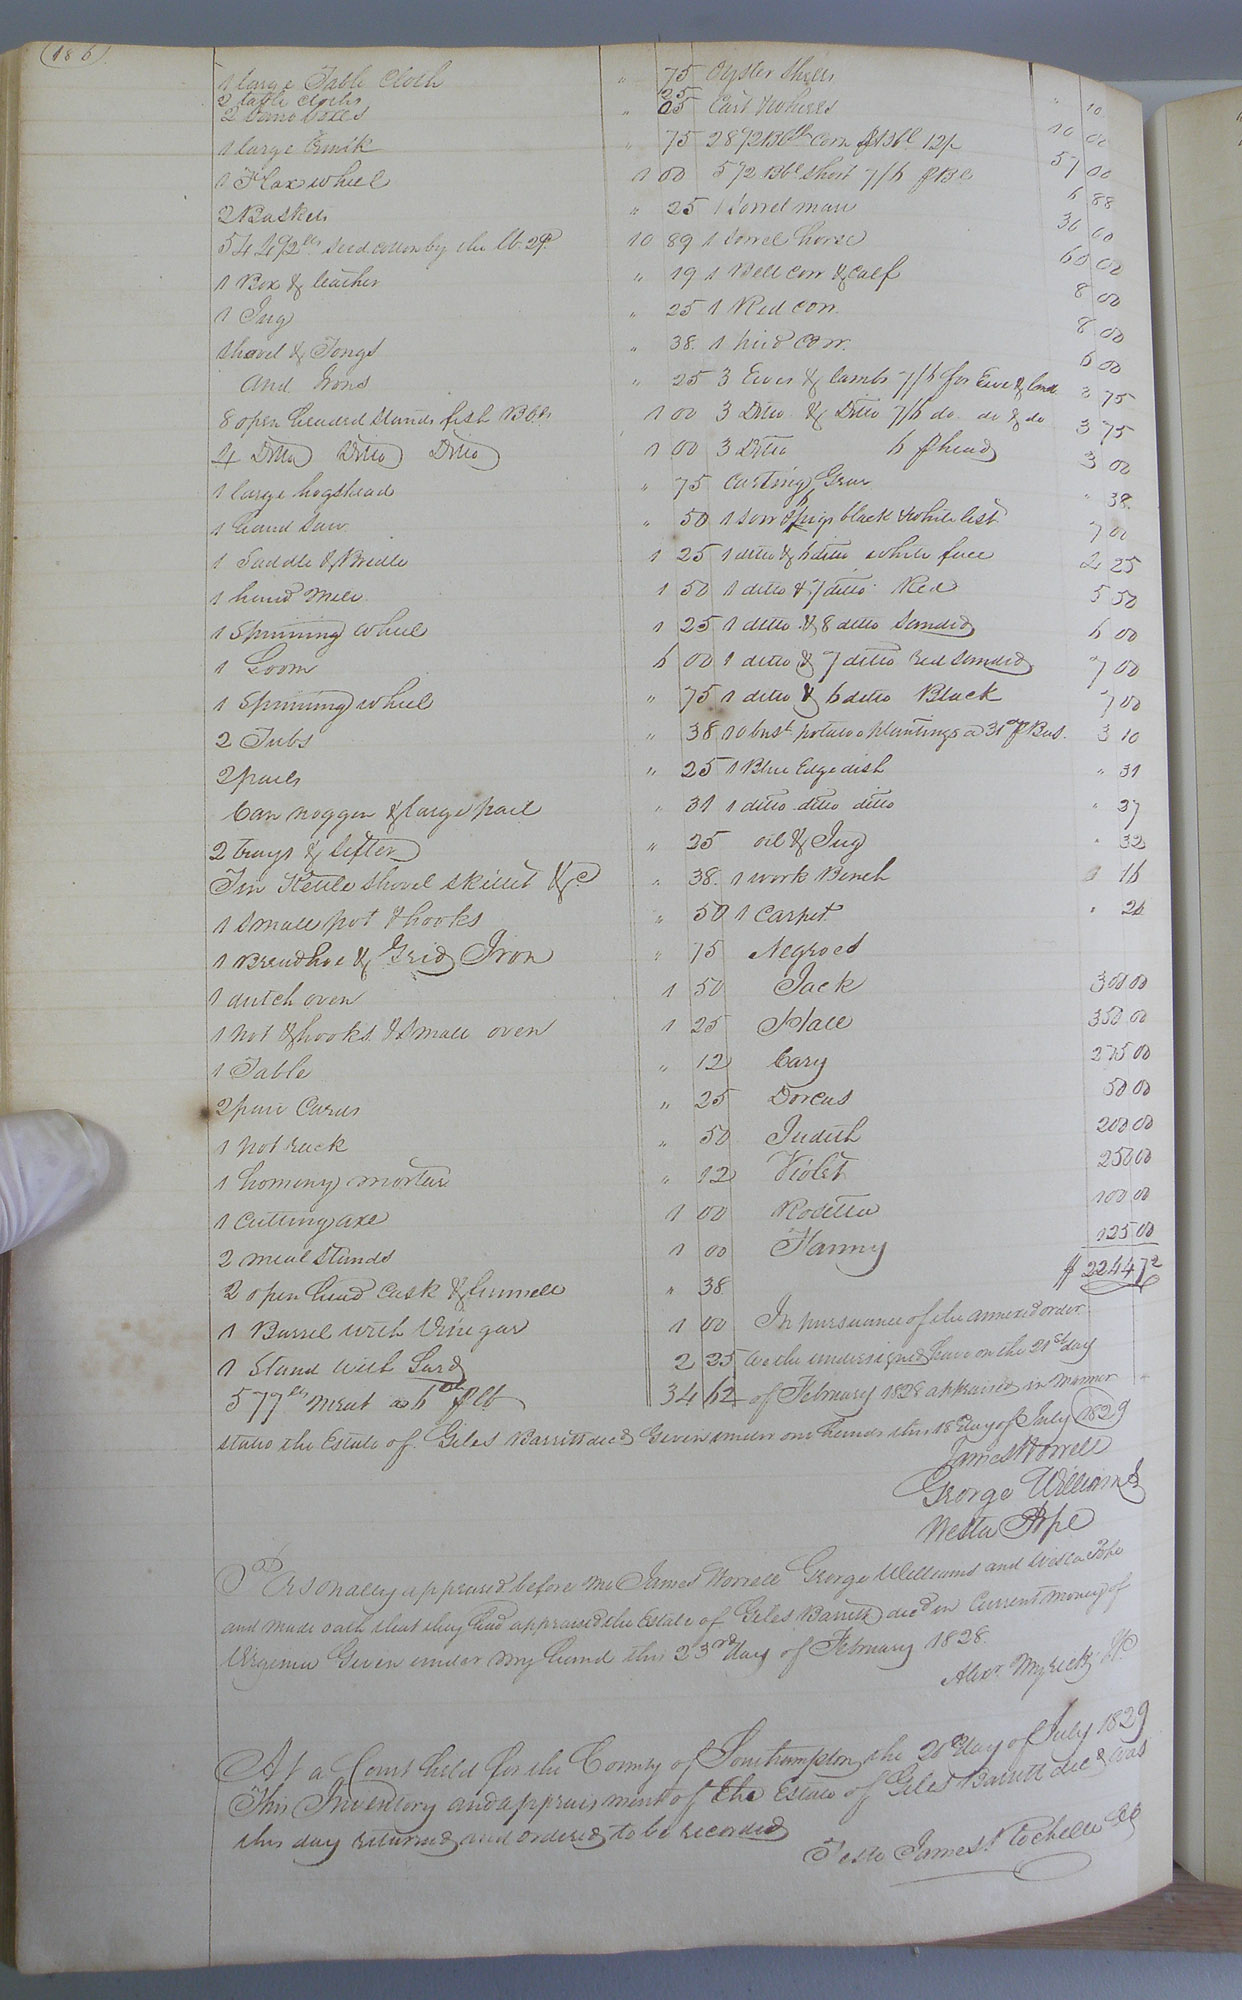 186
1 large Table Cloth " 75
2 table cloths " 25
2 Band boxes " 25
1 large Trunk " 75
1 Flax wheel 1 00
2 Baskets " 25
544 1/2 lbs seed cotton by the lb. 2c 10 89
1 Box & leather " 19
1 Jug " 25
Shovel & Tongs " 38.
And Irons " 25
8 open headed stands fish Bbls 1 00
4 Ditto Ditto Ditto 1 00
1 large hogshead " 75
1 hand saw " 50
1 Saddle & Bridle 1 25
1 hand Mill 1 50
1 Spinning wheel 1 25
1 Loom 6 00
1 Spinning wheel " 75
2 Tubs " 38
2 pails " 25
Can noggin & large pail " 31
2 trays & sifter " 25
Tin Kettle shovel skillet &c " 38.
1 small pot & hooks " 50
1 Breadhoe & Grid Iron " 75
1 dutch oven 1 50
1 pot & hooks & small oven 1 25
1 Table " 12
2 pair Cards " 25
1 pot rack " 50
1 hominy mortar " 12
1 Cutting axe 1 00
2 meal stands 1 00
2 open head cask & funnell " 38
1 Barrel with Vinegar 1 00
1 Stand with Lard 2 25
577 lbs meat a 6 cts p lb 34 62
Oyster Shells " 10
Cart & Wheels 10 00
28 1/2 Bbls corn p Bbl 12/ 57 00
5 1/2 Bbl short 7/6 p Bl 6 88
1 Sorrel mare 30 00
1 sorrel horse 60 00
1 Bell cow & calf 8 00
1 Red cow. 8 00
1 pied cow. 6 00
3 Ewes & lambs 7/6 for Ewe & lamb 3 75
3 Ditto & Ditto 7/6 do. do & do 3 75
3 Ditto 6 p head 3 00
Cutting Gear " 38.
1 sow & 6 pigs black & white list 7 00
1 ditto & 6 ditto white face 4 25
1 ditto & 7 ditto Red 5 50
1 ditto & 8 ditto Sandid 6 00
1 ditto & 7 ditto red sandid 7 00
1 ditto & 6 ditto Black 7 00
10 bust potatoe plantings a 31 cts p Bus. 3 10
1 Blue Edge dish " 31
1 ditto ditto ditto " 37
oil & Jug " 32
1 work Bench 16
1 Carpet " 24
Negroes
Jack 300 00
350 00
Cary 275 00
Dorcas 50 00
Judith 200 00
Violet 250 00
Rodetta 100 00
Fanny 125 00
$ 2244 72
In pursuance of the annexed order
We the undersigned have on the 21st day
of February 1828 appraised in manner
stated the Estate of Giles Barrett decd Given under our hands this 18 day of July 1829
James Worrell
George Williams
Westa Pope
Personally appeared before me James Worrell George Williams and Westa Pope
and made oath that they had appraised the Estate of Giles Barrett decd in Current money of
Virginia Given under my hand this 23rd day of February 1828.
Alexr. Myrick JP
At a Court held for the County of Southampton the 20th day of July 1829
This Inventory and appraisment of the Estate of Giles Barrett decd was
this day returned and ordered to be recorded
Teste James Rochelle CC